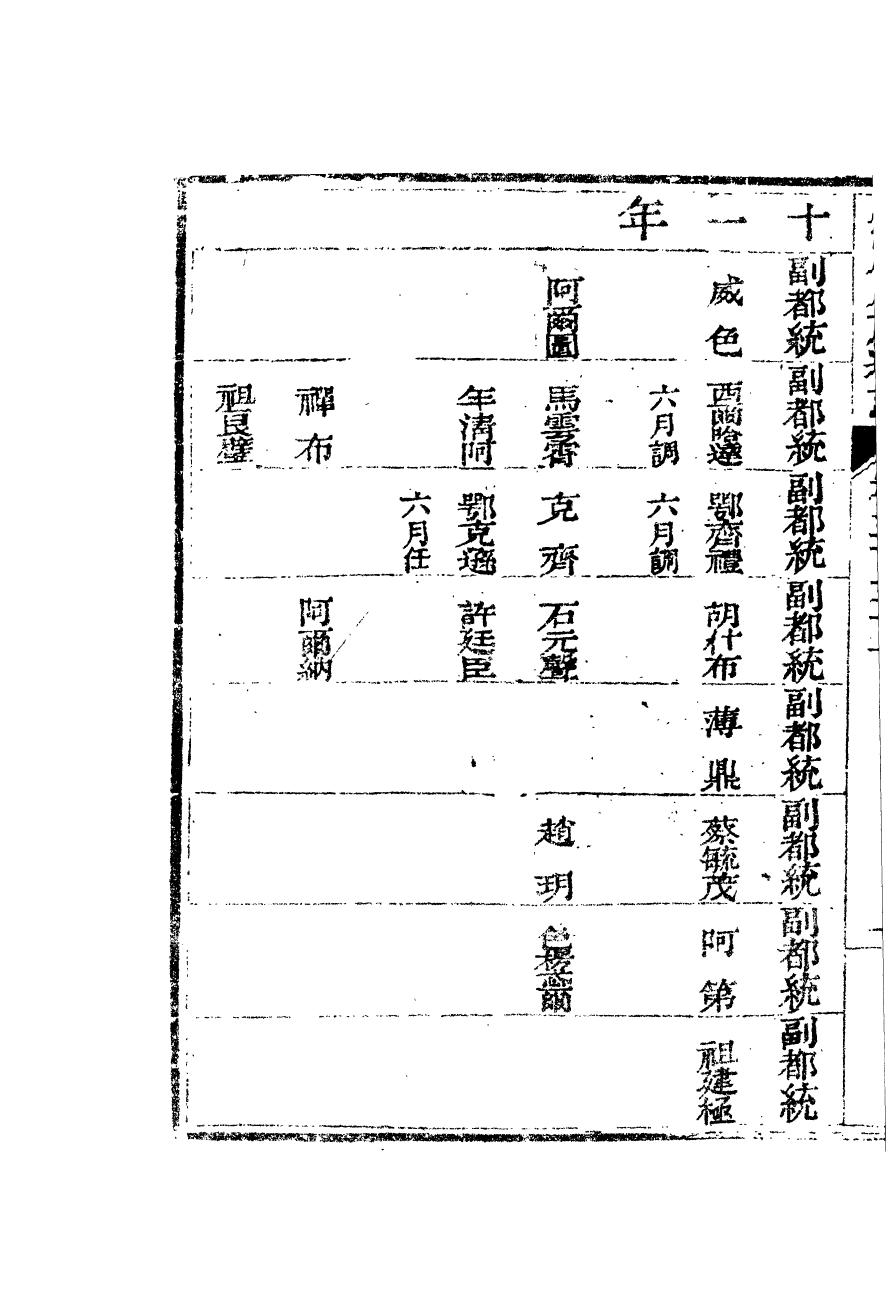 十一年
副都統
威色
阿爾圖
副都統
西爾哈達
六月調
馬雲霄
年清阿
禪布
祖良璧
副都統
鄂齊禮
六月調
克齊
鄂克遜
六月任
副都統
胡什布
石元
許廷臣
阿爾納
副都統
薄鼎
副都統
蔡毓茂
趙玥
副都統
阿第
色楞爾
副都統
祖建極